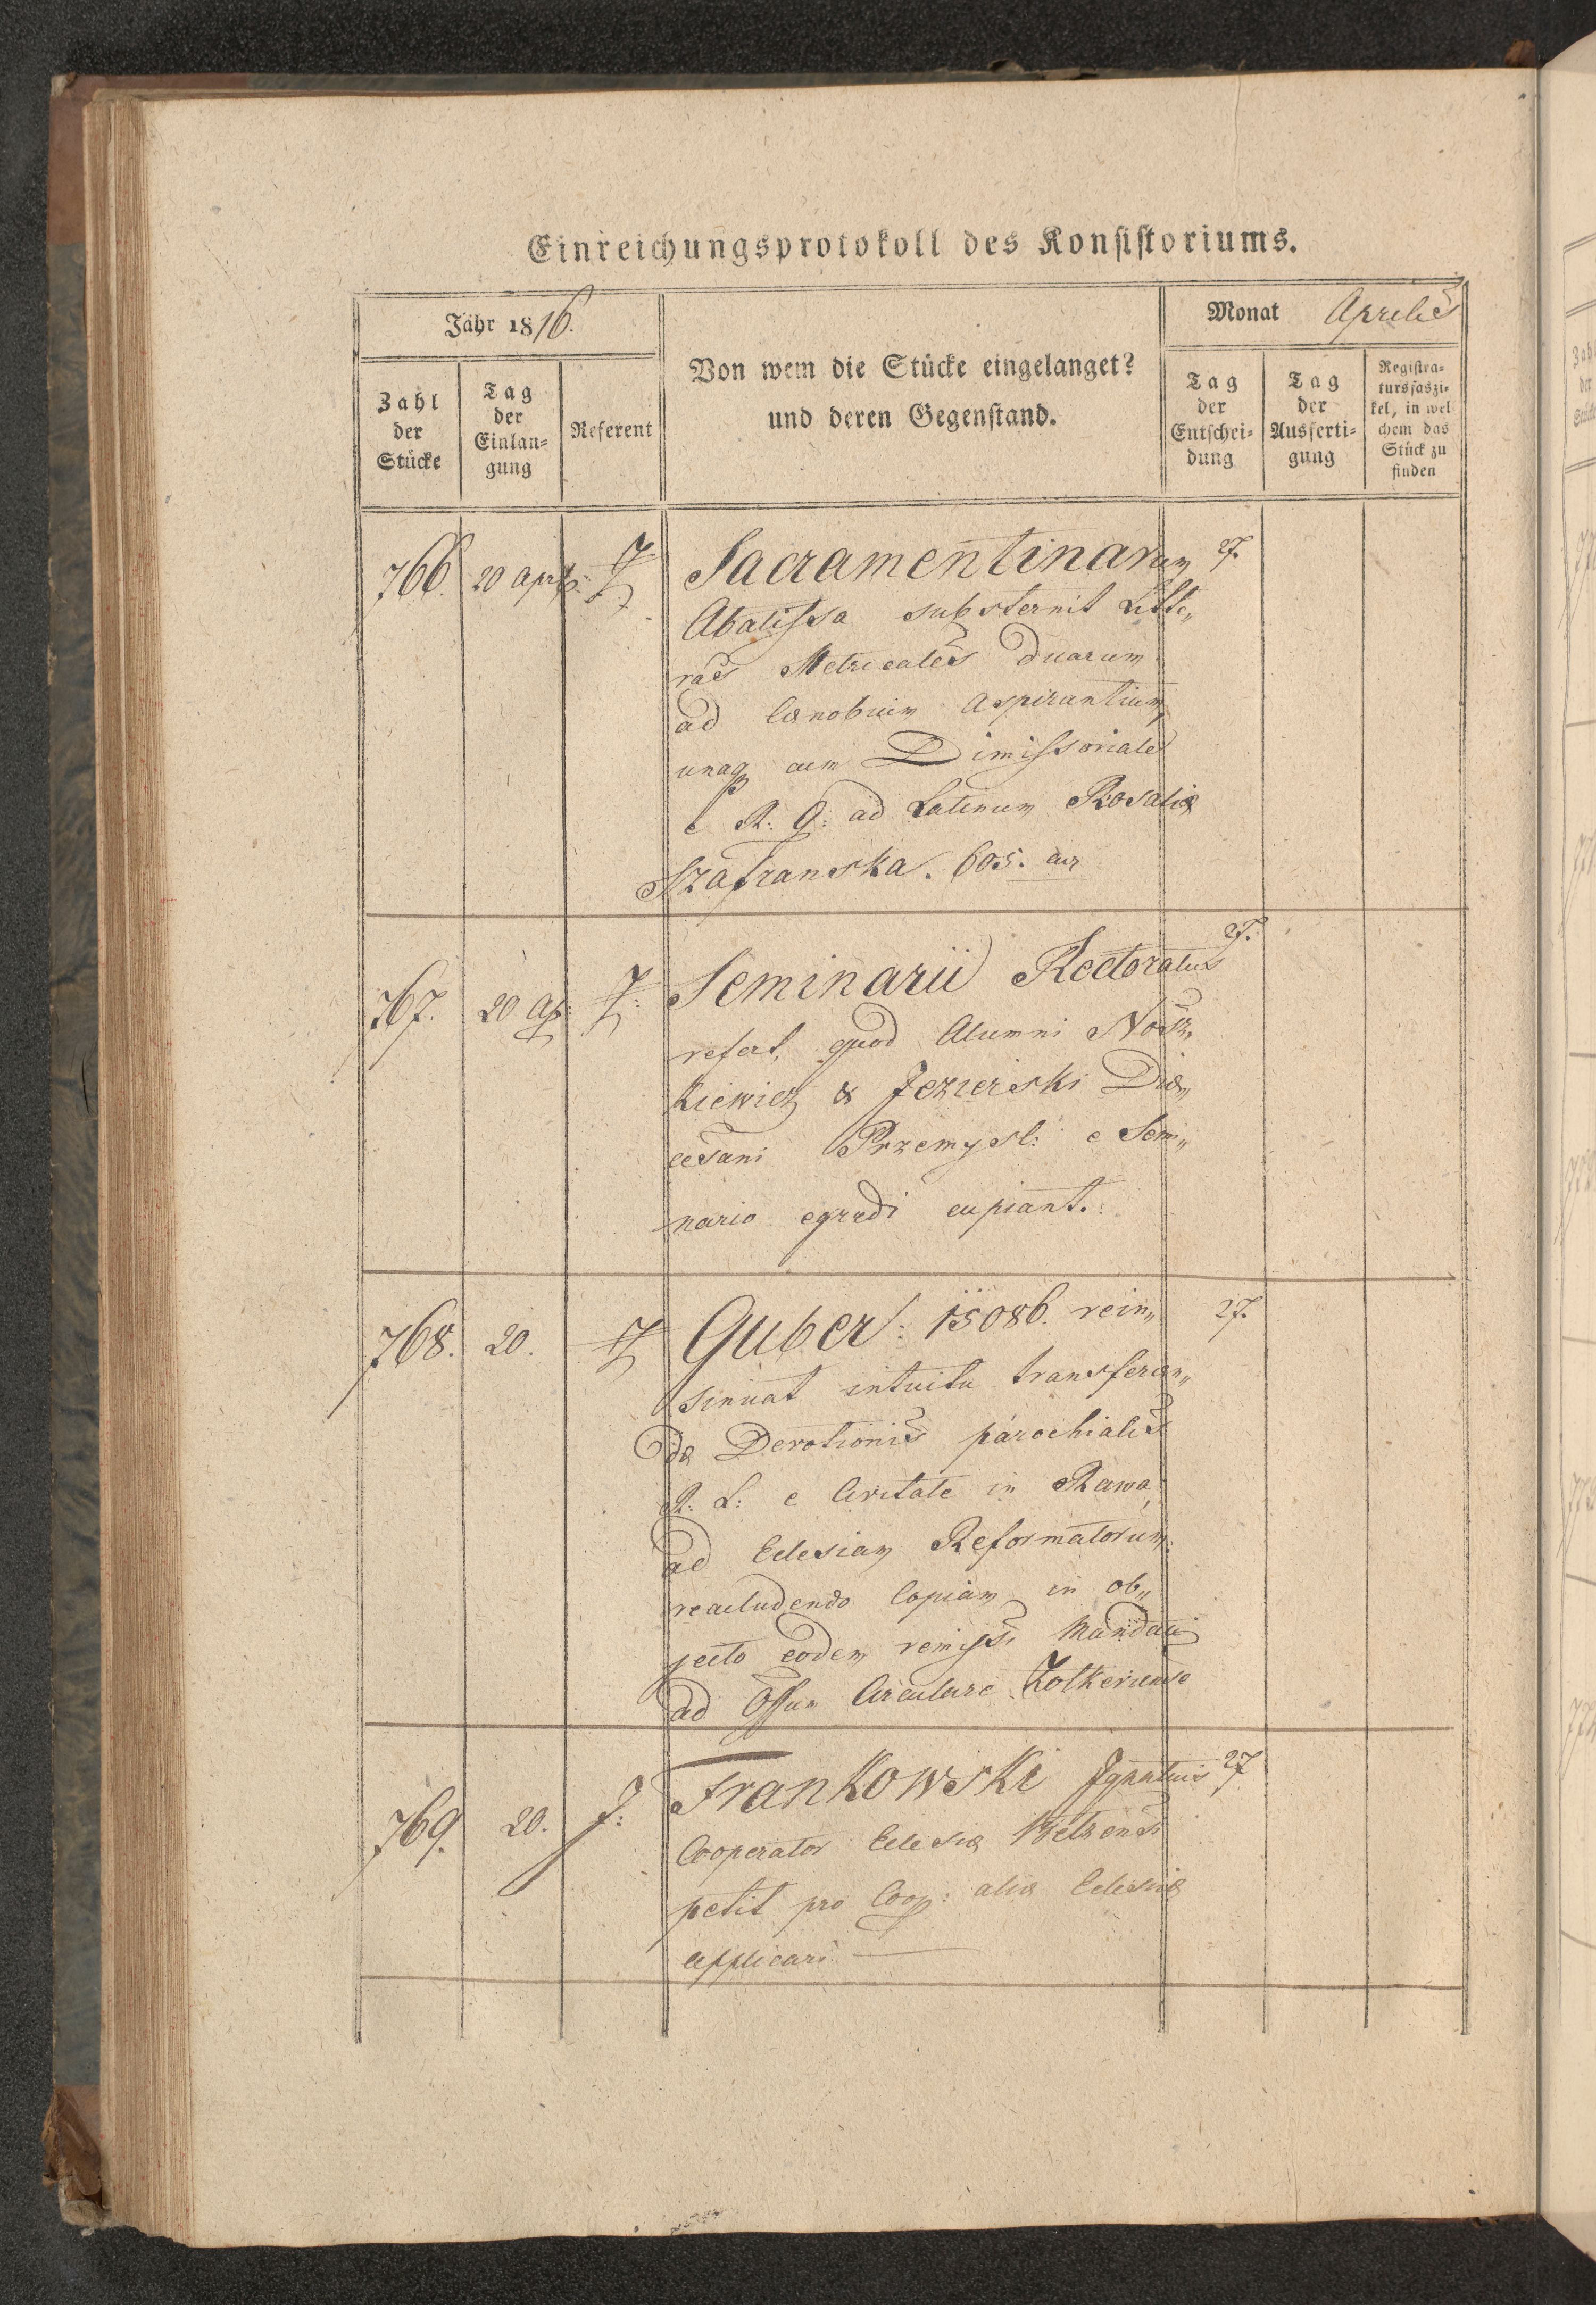 Einreichungsprotokoll des Konsistoriums.
Jahr 1816.
Monat Aprilis
Zahl der Stücke
Tag der Einlan= gung
Referent
Von wem die Stücke eingelanget?
und deren Gegenstand.
Tag der Entschei= dung
Tag der Ausferti= gung
Registra= tursfaszi= kel, in wel chem das Stück zu finden
766. 20 Apr: Sacramentinarum 27.
Abatissa substernit Litte„
ras Metricales duarum
ad Cænobium aspirantium,
unaq cum Dimissoriales
e R: G: ad Latinum Rosaliæ
Szafranska. 605. cur
767. 20 Ap: Seminarii Rectoratus 27.
refert, quod Alumni Nosz„
kiewicz & Jezierski Diæ„
cesani Przemysl: e Semi„
nario egredi cupiant.
768. 20. Guber: 15086. rein„ 27.
sinuat intuitu transferen„
dæ Devotionis parochialis
R: L: e Civitate in Rawa,
ad Eclesiam Reformatorum
reacludendo Copiam in ob„
jecto eodem remissi Mandati
ad Offum Circulare Zolkieviense
769. 20. J: Frankowski Ignatius 27
Cooperator Eclesiæ Belzensis
petit pro Coop: aliæ Eclesiæ
applicari